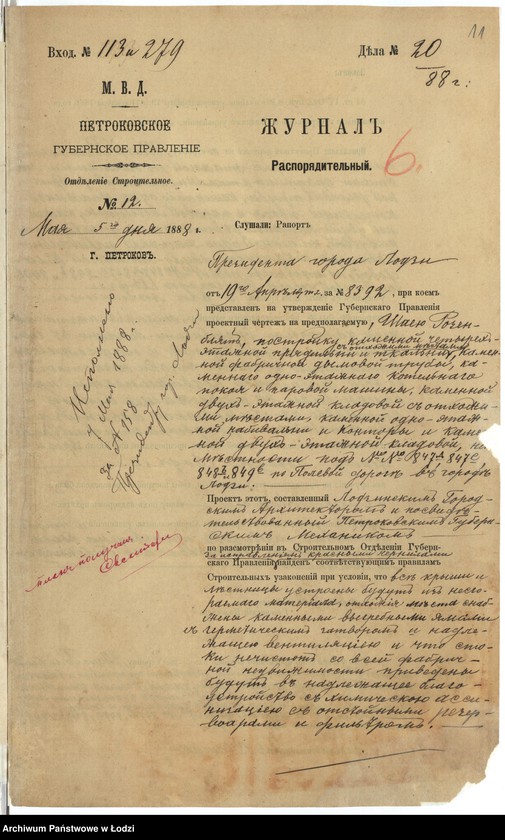 11
Вход. № 113 и 279
Дѣла № 20
88 г:
М. В. Д.
ПЕТРОКОВСКОЕ
ГУБЕРНСКОЕ ПРАВЛЕНІЕ
Отдѣленіе Строительное.
№ 12.
Мая 5го дня 1888 г.
Г. ПЕТРОКОВЪ.
ЖУРНАЛЪ
Распорядительный.
6.
Слушали: Рапортъ
Президента города Лодзи
отъ 19го Апрѣля за № 8392, при коемъ
представленъ на утвержденіе Губернскаго Правленія
проектный чертежъ на предполагаемую, Шаею Розен-
блятъ, постройку каменной четырех-
этажной прядильни и ткальни, камен-
ной фабричной дымовой трубой, ка-
меннаго одно-этажнаго котельнаго
покоя и паровой машины, каменной
двухъ-этажной кладовой съ отхожи-
ми мѣстами каменной одно-этаж-
ной и конторы и камен-
ной двухъ-этажной кладовой, на
мѣстности подъ №№ 847д 847с
848д 849с по Полевой дорогѣ въ городѣ
Лодзи.
Проектъ этотъ, составленный Лодзинскимъ Город-
скимъ Архитекторомъ и посвидѣ-
тельствованный Петроковскимъ Губерн-
скимъ Механикомъ
по разсмотрѣніи въ Строительномъ Отдѣленіи Губерн-
за исправленіями красными чернилами
скаго Правленія найденъ соотвѣтствующимъ правиламъ
Строительныхъ узаконеній при условіи, что всѣ крыши и
лѣстницы устроены будутъ изъ несго-
раемаго матеріала, отхожія мѣста снаб-
жены каменными выгребными ямами
съ герметическимъ затворомъ и надле-
жащею вентиляціею и что сто-
ки нечистотъ со всей фабрич-
ной недвижимости приведены
будутъ въ надлежащее благо-
устройство съ химическою ассе-
низаціею съ отстойными резер-
воарами и фильтромъ.
Исполнено
9 Мая 1888 г.
за № 158
Президенту гор. Лодзи
планъ получилъ
Archiwum Państwowe w Łodzi